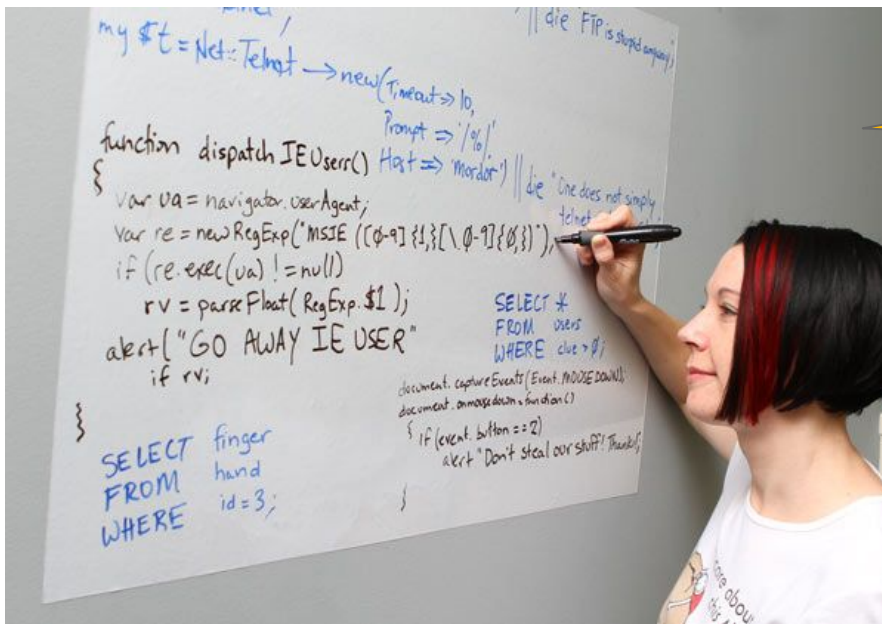 || die "FTP is stupid anyway";
my $t = Net::Telnet → new(Timeout => 10,
Prompt => '/%/'
Host => 'mordor') || die "One does not simply
telnet
function dispatch IEUsers()
{
var ua = navigator.userAgent;
var re = new RegExp("MSIE ([0-9]{1,}[\.0-9]{0,})"),
if (re.exec(ua) != null)
rv = parseFloat( RegExp.$1 );
alert("GO AWAY IE USER"
if rv;
}
SELECT *
FROM users
WHERE clue > 0;
document.captureEvents(Event.MOUSEDOWN);
document.onmousedown = function()
{ if (event.button == 2)
alert "Don't steal our stuff! Thanks!";
}
SELECT finger
FROM hand
WHERE id = 3;
care about
this